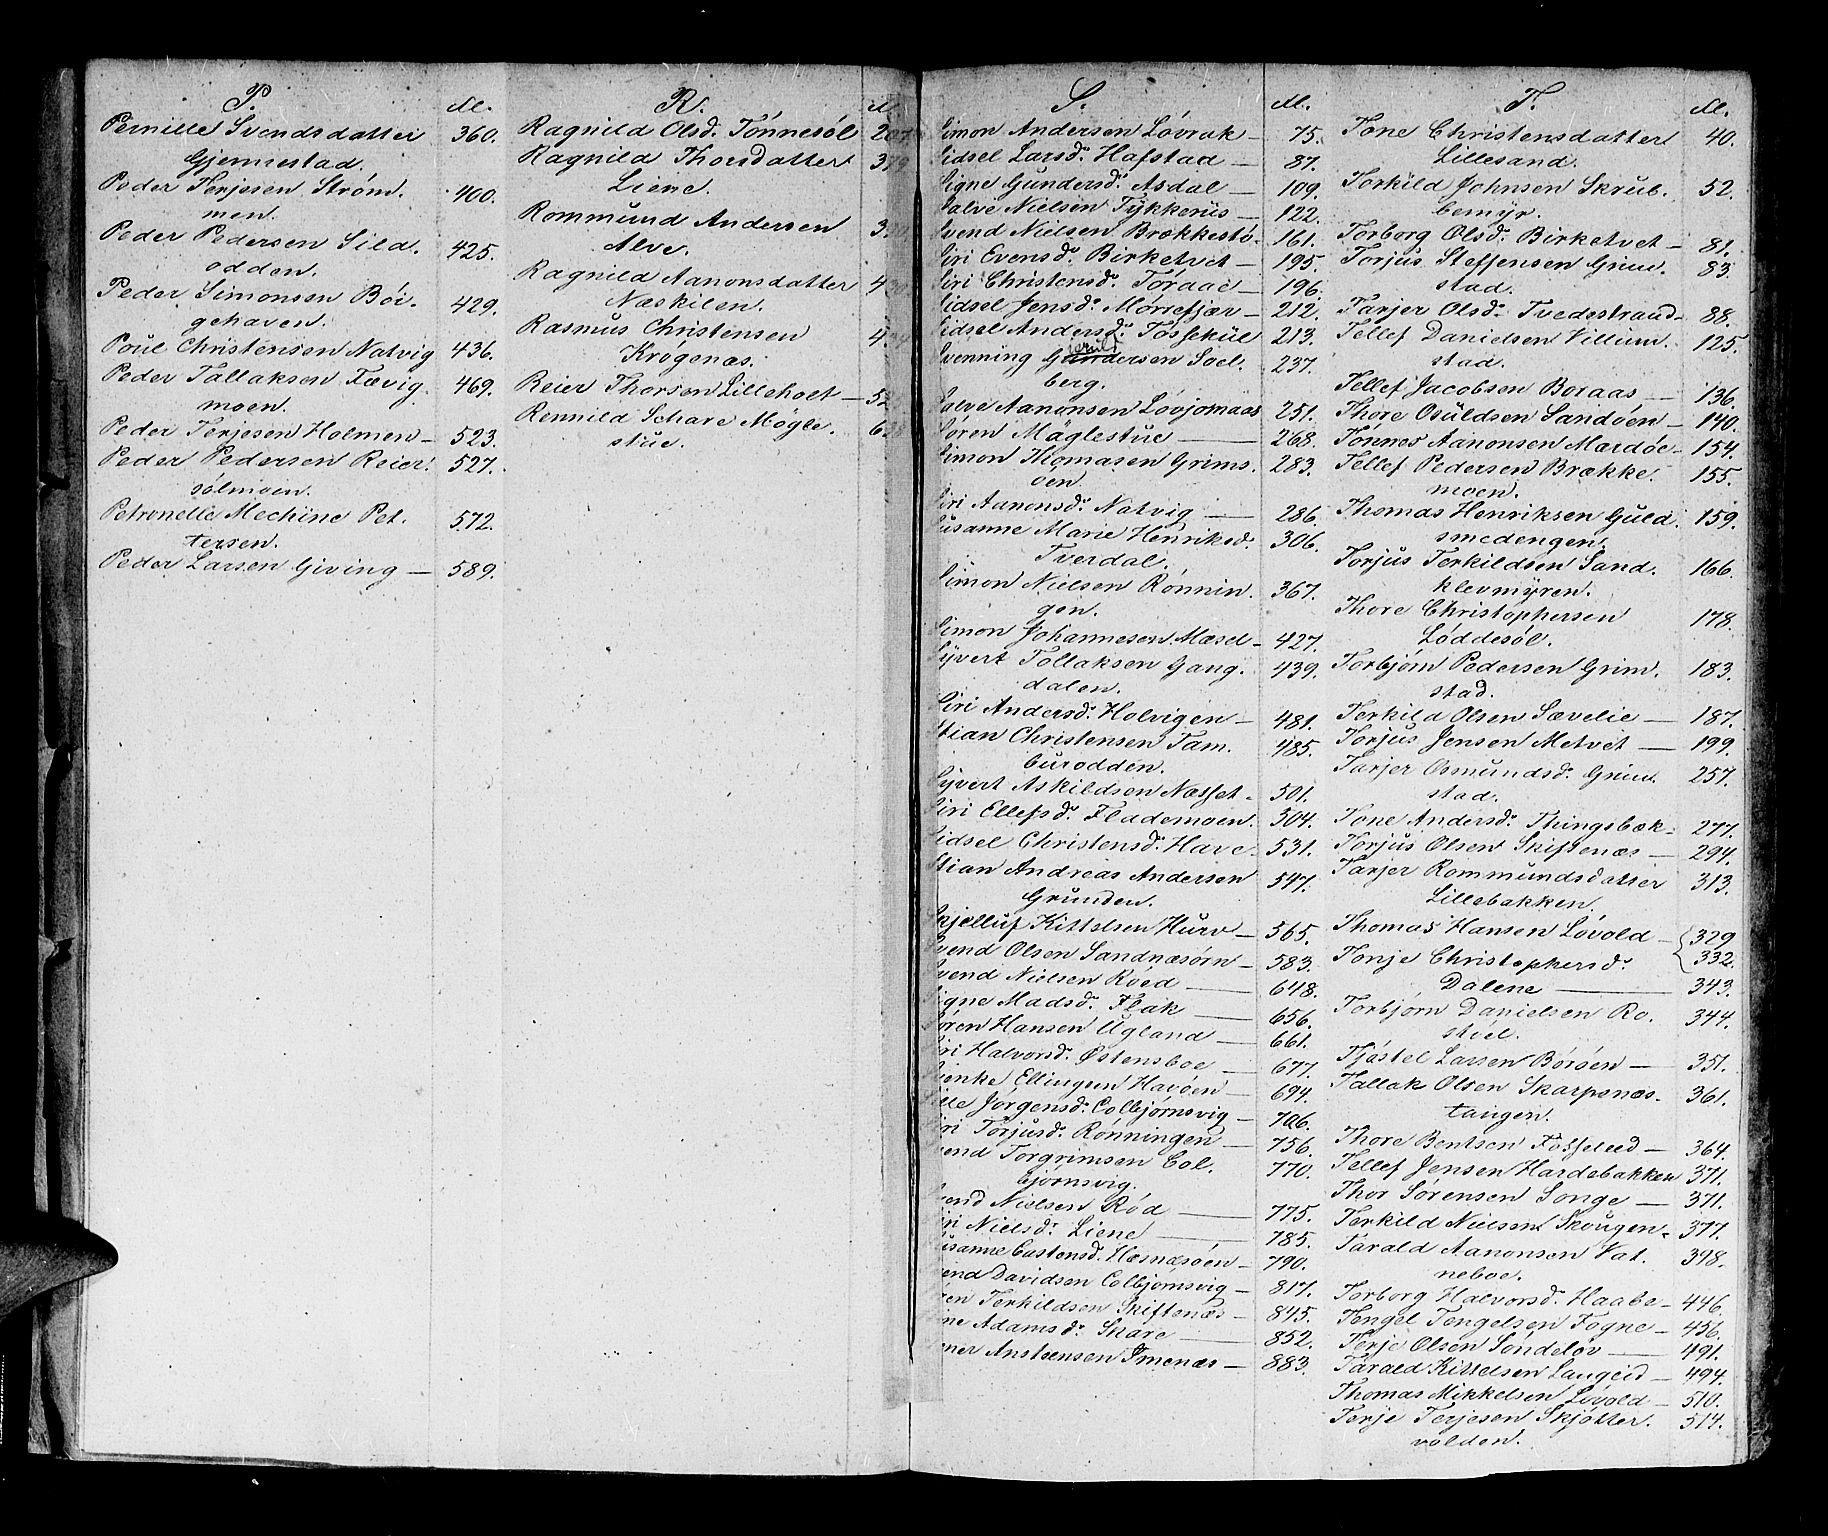 P. No.
Pernille Svendsdatter 360.
Gjennestad.
Peder Terjesen Strøm. 400.
men.
Peder Pedersen Sild. 425.
odden.
Peder Simonsen Bør. 429.
gehaven.
Poul Christensen Natvig 436.
Peder Tallaksen Fævig 469.
moen.
Peder Terjesen Holmen — 523.
Peder Pedersen Reier. 527.
sølmoen.
Petronelle Mechine Pet. 572.
tersen.
Peder Larsen Giving — 589.
R.
Ragnild Olsd. Tønnesøl
Ragnild Thorsdatter
Liene.
Rommund Andersen
Alve.
Ragnild Aanonsdatter
Næskilen.
Rasmus Christensen
Krøgenæs.
Reier Thorsen Lilleholt —
Rennild Schare Møgle.
stue.
S. No.
Simon Andersen Løvrak — 75.
Sidsel Larsd. Hafstad — 87.
Signe Gundersd. Asdal — 109.
Salve Nielsen Tykkerüs — 122.
Svend Nielsen Brækkestø. 161.
Siri Evensd. Birketvet — 195.
Siri Christensd. Toraae — 196.
Sidsel Jensd. Mørrefjær — 212.
Sidsel Andersd. Fossekül 213.
Svenning Gundersen Soel. 237.
berg.
Salve Aanonsen Løvjomaas 251.
Søren Møglestue — 268.
Simon Thomasen Grims. 283.
oen.
Siri Aanonsd. Natvig — 286.
Susanne Marie Henriksd. 306.
Tverdal.
Simon Nielsen Rønnin. 367.
gen.
Simon Johannesen Mæsel — 427.
Syvert Tollaksen Gang. 439.
dalen.
Siri Andersd. Holvigen — 481.
Stian Christensen Tam. 485.
burodden.
Syvert Askildsen Næsset — 501.
Siri Ellefsd. Flademoen. 304.
Sidsel Christensd. Have — 531.
Stian Andreas Andersen 547.
Grunden.
Skjelluf Kittelsen Hurv — 565.
Svend Olsen Sandnæsørn — 583.
Svend Nielsen Røed — 648.
Signe Madsd. Flak — 656.
Søren Hansen Ugland — 661.
Siri Halvorsd. Østensboe — 677.
Ellingsen Havøen — 694.
Jørgensd. Colbjørnsvig — 706.
Siri Torjusd. Rønningen — 756.
Svend Torgrimsen Col. 770.
bjørnsvig.
Svend Nielsen Rød — 775.
Siri Nielsd. Liene — 785.
Susanne Castensd. Hæsnæsøen — 790.
Svend Davidsen Colbjørnsvig — 817.
Terkildsen Skiftenæs — 845.
Adamsd. Skare — 852.
Anstensen Imenæs — 883.
T. No.
Tone Christensdatter 40.
Lillesand.
Torkild Johnsen Skrub. 52.
bemyr.
Torborg Olsd. Birketvet — 81.
Torjus Steffensen Grim. 83.
stad.
Tarjer Olsd. Tvedestrand — 88.
Tellef Danielsen Villum. 125.
stad.
Tellef Jacobsen Boraas — 136.
Thore Osuldsen Sandøen — 140.
Tønnes Aanonsen Mardøe — 154.
Tellef Pedersen Brække. 155.
moen.
Thomas Henriksen Guld. 159.
smedengen.
Torjus Terkildsen Sand. 166.
klevmyren.
Thore Christophersen 178.
Løddesøl.
Torbjørn Pedersen Grim. 183.
stad.
Terkild Olsen Sævelie — 187.
Torjus Jensen Metvet — 199.
Tarjer Osmundsd. Grim. 257.
stad.
Tone Andersd. Thingsbæk — 277.
Torjus Olsen Skiftenæs — 294.
Tarjer Rommundsdatter 313.
Lillebakken.
Thomas Hansen Løvold — 329
332.
Tonje Christophersd.
Dalene — 343.
Torbjørn Danielsen Ro. 344.
støl.
Tjøstel Larsen Børøen — 351.
Tallak Olsen Skarpsnæs. 361.
tangen.
Thore Bentsen Fosselied — 364
Tellef Jensen Hardebakken 371.
Thor Sørensen Songe — 371.
Terkild Nielsen Skougen — 377.
Tarald Aanonsen Vat. 398.
neboe.
Torborg Halvorsd. Haabe — 446
Tengel Tengelsen Fogne — 456
Terje Olsen Søndeløv — 491.
Tarald Kittelsen Laugeid — 494.
Thomas Mikkelsen Løvold — 510.
Terje Terjesen Skjøtter. 514.
volden.